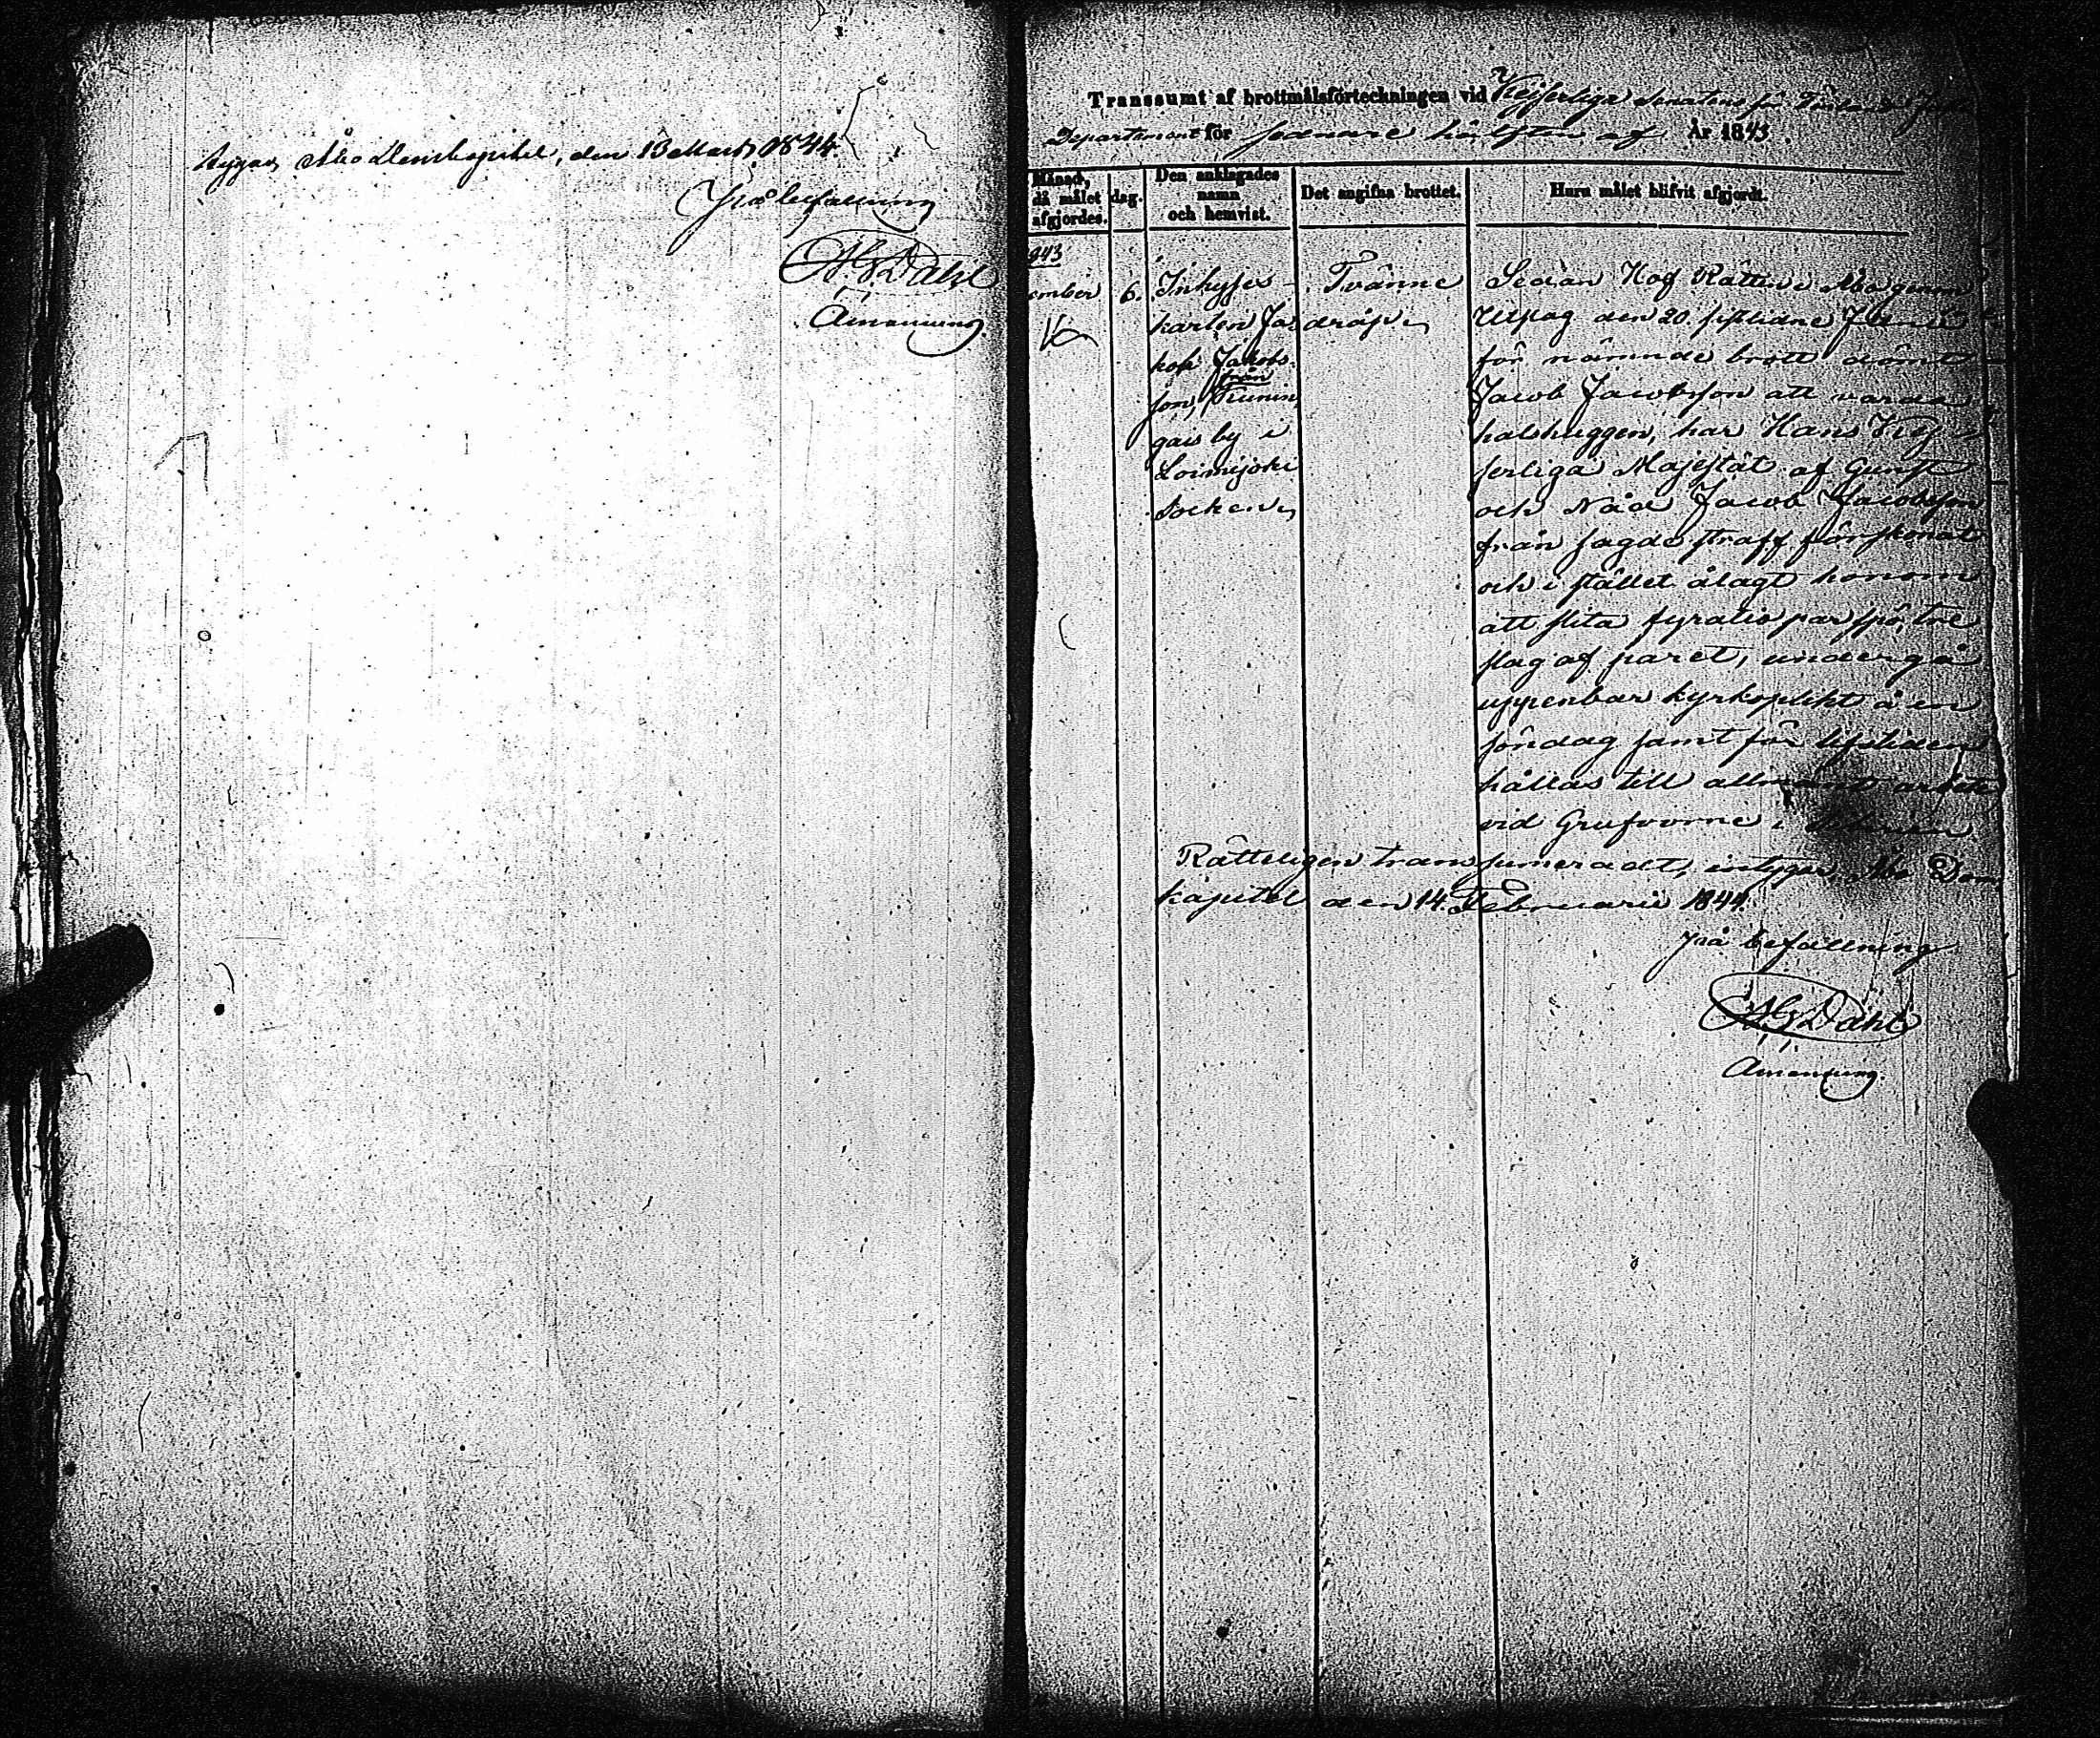 tygas, Åbo Domkapitel, den 13 Mart. 1844.
På befallning
A G Dahl
Amanuens
Transsumt af brottmålsförteckningen vid Kejserliga Senatens för Finland Just
Departement för sednare hälften af År 1843.
Månad, då målet afgjordes.
dag.
Den anklagades namn och hemvist.
Det angifna brottet.
Huru målet blifvit afgjordt.
843
ember 6.
Inhyses-
karlen Ja-
kob Jakobs-
son, från
gais by i
Loimijoki
Socken
Tvänne
dråp
Sedan Hof Rätten i Åbo genom
Utslag den 20. sistlidne
för nämnde brott dömt
Jacob Jacobsson att varda
halshuggen, har Hans Kej-
serliga Majestät af Gunst
och Nåd Jacob Jacobsson
från sagde straff förskonat
och i stället ålagt honom
att slita fyratio par spö, tre
slag af paret, undergå
uppenbar kyrkoplikt å en
söndag samt för lifstiden
hållas till allmänt arbete
vid Grufvorne i Siberien
Rätteligen transsumeradt, intygar, Åbo Dom
kapitel den 14. Februarii 1844.
På befallning
A G Dahl
Amanuens.